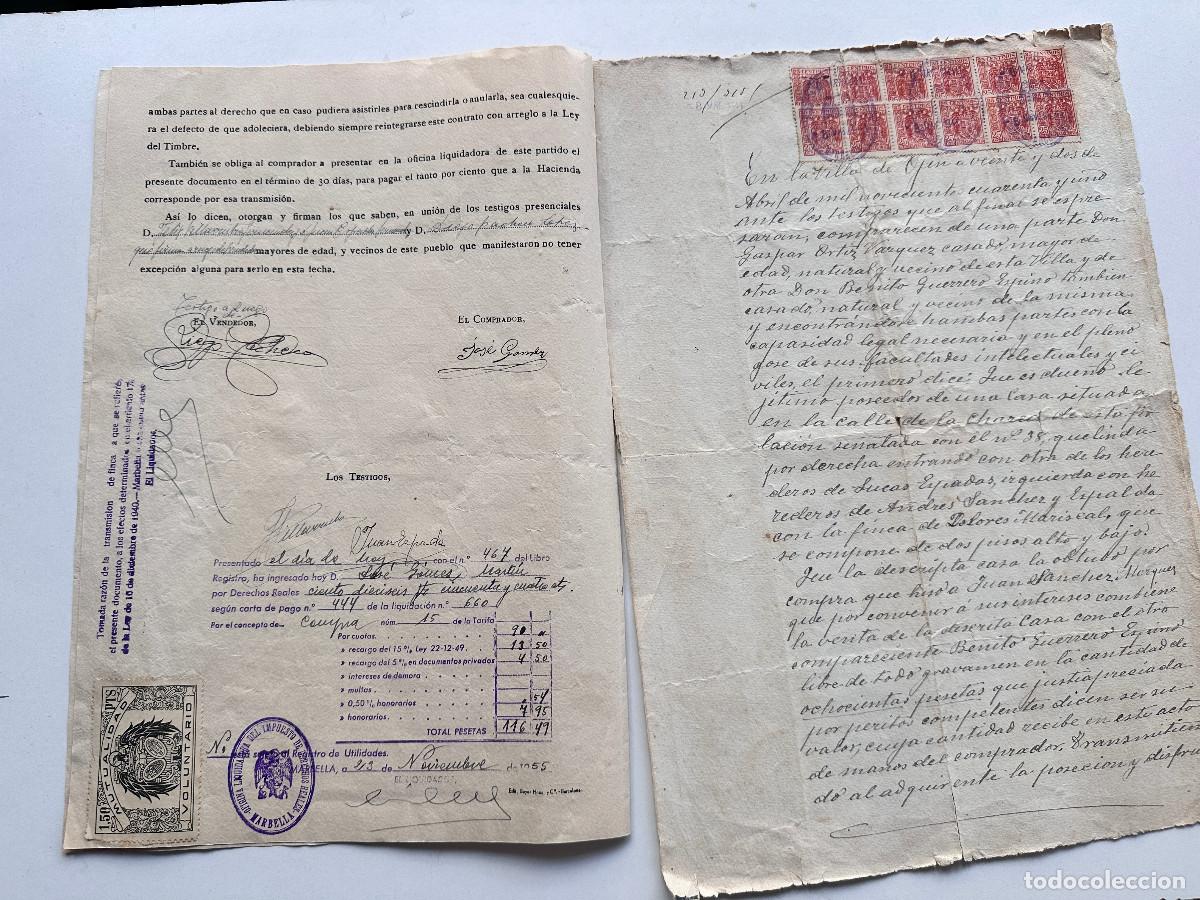 ambas partes al derecho que en caso pudiera asistirles para rescindirla o anularla, sea cualesquie-
ra el defecto de que adoleciera, debiendo siempre reintegrarse este contrato con arreglo a la Ley
del Timbre.
También se obliga al comprador a presentar en la oficina liquidadora de este partido el
presente documento en el término de 30 días, para pagar el tanto por ciento que a la Hacienda
corresponde por esa transmisión.
Así lo dicen, otorgan y firman los que saben, en unión de los testigos presenciales
D. y D.
mayores de edad, y vecinos de este pueblo que manifestaron no tener
excepción alguna para serlo en esta fecha.
Testigo a ruego
EL VENDEDOR,
Diego Pacheco
EL COMPRADOR,
José Gomez
Tomada razón de la transmisión de finca a que se refiere,
el presente documento, a los efectos determinados en el artículo 17,
de la Ley de 16 de diciembre de 1940.— Marbella
El Liquidador,
LOS TESTIGOS,
Villarrubia
Juan Espada
Presentado el día de hoy con el n.° 467 del Libro
Registro, ha ingresado hoy D. José Gómez Martín
por Derechos Reales ciento dieciseis pts cuarenta y cuatro cts.
según carta de pago n.° 444 de la liquidación n.° 660
Por el concepto de Compra núm 15 de la Tarifa
Por cuotas. 90 "
» recargo del 15%, Ley 22-12-49. 13 50
» recargo del 5%, en documentos privados 4 50
» intereses de demora
» multas
» 0,50 % honorarios 54
» honorarios. 7 95
TOTAL PESETAS 116 49
No está sujeto al Registro de Utilidades.
MARBELLA, a 23 de Noviembre de 1955
EL LIQUIDADOR,
Edit. Bayer Hnos. y C.ª - Barcelona
1,50 PTS
MUTUALIDAD
VOLUNTARIO
OFICINA LIQUIDADORA DEL IMPUESTO DE DERECHOS REALES
MARBELLA
213/315
En la Villa de Ojen a veinte y dos de
Abril de mil novecientos cuarenta y uno
ante los testigos que al final se expre
saran, comparecen de una parte Don
Gaspar Ortiz Vazquez casado, mayor de
edad, natural y vecino de esta Villa y de
otra Don Benito Guerrero Espino tambien
casado, natural y vecino de la misma,
y encontrandose hambas partes con la
capacidad legal necesaria y en el pleno
gose de sus facultades intelectuales y ci
viles, el primero dice: Que es dueño le
jitimo poseedor de una Casa situada
en la calle de la Charca de esta po
blación señalada con el nº 38, que linda
por derecha entrando con otra de los here
deros de Lucas Espadas, izquierda con he
rederos de Andres Sanchez y Espalda
con la finca de Dolores Mariscal, que
se compone de dos pisos alto y bajo.
Que la descripta casa la obtubo por
compra que hizo a Juan Sanchez Marquez
que por convenir a sus intereses combiene
la venta de la descrita Casa con el otro
compareciente Benito Guerrero Espino
libre de todo gravamen en la cantidad de
ochocuentas pesetas que justiapreciada
por peritos competentes dicen ser su
valor, cuya cantidad recibe en este acto
de manos del comprador, transmitien
do al adquirente la posecion y disfru
todocoleccion